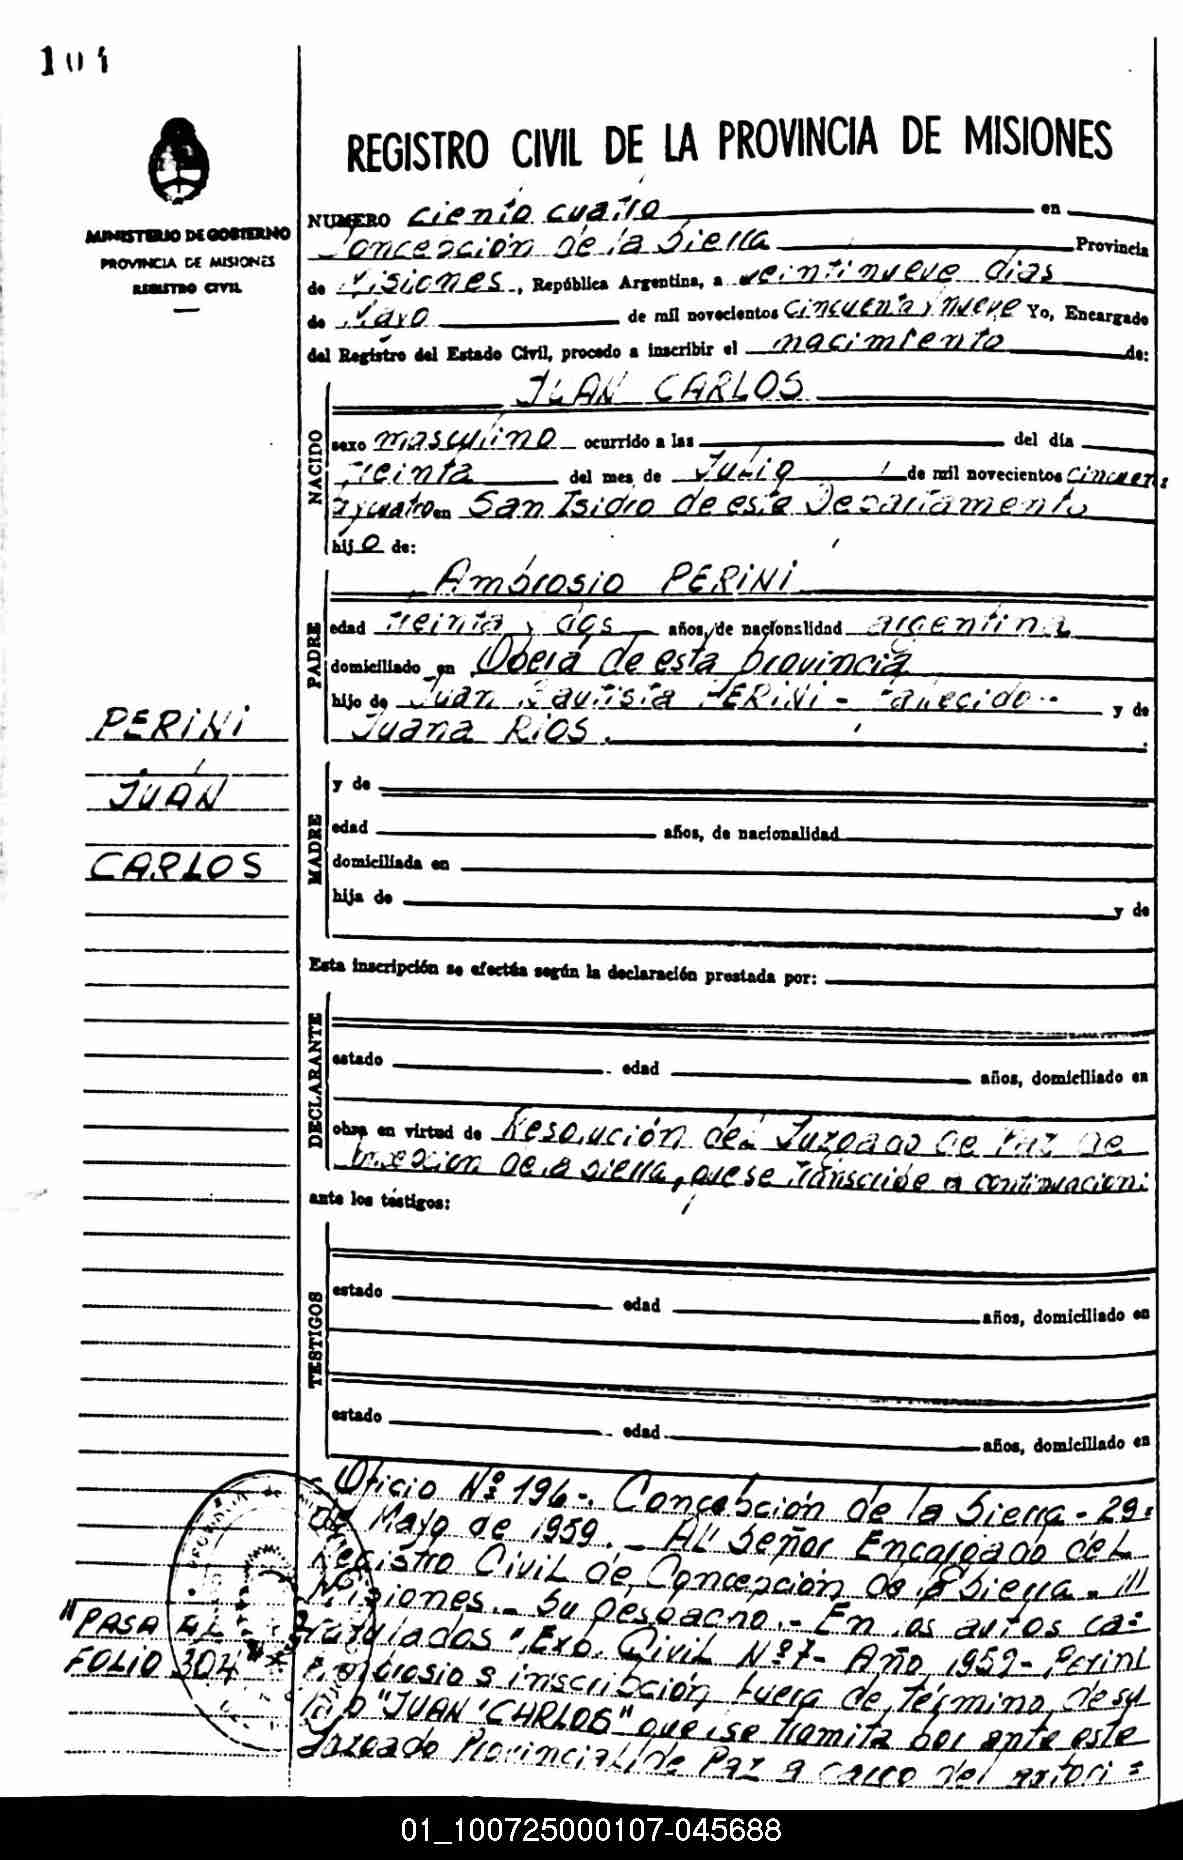 104
REGISTRO CIVIL DE LA PROVINCIA DE MISIONES
MINISTERIO DE GOBIERNO
PROVINCIA DE MISIONES
REGISTRO CIVIL
NUMERO ciento cuatro en
Concepción de la Sierra Provincia
de Misiones, República Argentina, a veintinueve días
de Mayo de mil novecientos cincuenta y nueve Yo, Encargado
del Registro del Estado Civil, procedo a inscribir el nacimiento de:
JUAN CARLOS
NACIDO
sexo masculino ocurrido a las del día
treinta del mes de Julio de mil novecientos cincuen:
ta y cuatro en San Isidro de este Departamento
hijo de:
Ambrosio PERINI
PADRE
edad treinta y dos años, de nacionslidad argentina
domiciliado en Oberá de esta provincia
hijo de Juan Bautista PERINI - fallecido - y de
Juana RIOS.
PERINI
JUAN
CARLOS
MADRE
y de
edad años, de nacionalidad
domiciliada en
hija de y de
Esta inscripción se efectúa según la declaración prestada por:
DECLARANTE
estado edad años, domiciliado en
obra en virtud de Resolución del Juzgado de Paz de
Concepción de la Sierra, que se transcribe a continuación:
ante los testigos:
TESTIGOS
estado edad años, domiciliado en
estado edad años, domiciliado en
Oficio Nº 196-. Concepción de la Sierra - 29:
de Mayo de 1959. - AL Señor Encargado del
Registro Civil de Concepción de la Sierra. -
Misiones.- Su despacho.- En los autos ca:
ratulados "Exp. Civil Nº 7- Año 1959- Perini
Ambrosio s/ inscripción fuera de término de su
hijo "JUAN CARLOS" que se tramita por ante este
Juzgado Provincial de Paz a cargo del autori =
"PASA AL
FOLIO 304"
01_100725000107-045688